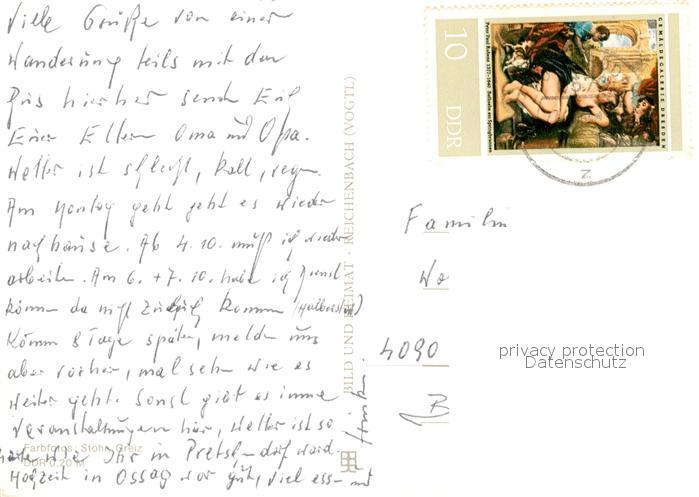 Viele Grüße von einer
Wanderung teils mit dem
Bus hierher senden Euch
Eure Eltern Oma und Opa.
Wetter ist schlecht, kalt, regen.
Am Montag geht geht es wieder
nachhause. Ab 4.10. muß ich wieder
arbeiten. Am 6. + 7.10. habe ich Dienst
können da nicht kommen (Halberstadt)
Komm 8 Tage später, melden uns
aber vorher, mal sehn wie es
weiter geht. Sonst gibt es immer
Veranstaltungen hier, Wetter ist so
wie Ihr in wart.
Hochzeit in Ossag war gut, viel essen und
trinken.
Farbfotos: Stöhr, Greiz
DDR 0,20 M
BILD UND HEIMAT · REICHENBACH (VOGTL)
GEMÄLDEGALERIE DRESDEN
Peter Paul Rubens 1577-1640 Bathseba am Springbrunnen
10 DDR
z
Familie
Wo
4090
privacy protection
Datenschutz